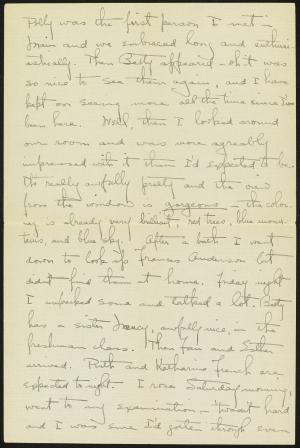 Polly was the first person I met -
and we embraced long and enthusi-
astically. Then Betty appeared - oh it was
so nice to see them again, and I have
kept on seeing more all the time since I've
been here. Well, then I looked around
our room and was more agreeably
impressed with it than I'd expected to be.
It's really awfully pretty and the view
from the windows is gorgeous - the color-
ing is already very brilliant, red trees, blue moun-
tains, and blue sky. After a bath I went
down to look up Frances Anderson but
didn't find them at home. Friday night
I unpacked some and talked a lot. Betty
has a sister Nancy, awfully nice, in the
freshman class. Then Fan and Esther
arrived. Ruth and Katharine French are
expected to-night. I rose Saturday morning,
went to my examination - 'twasn't hard
and I was sure I'd gotten through even